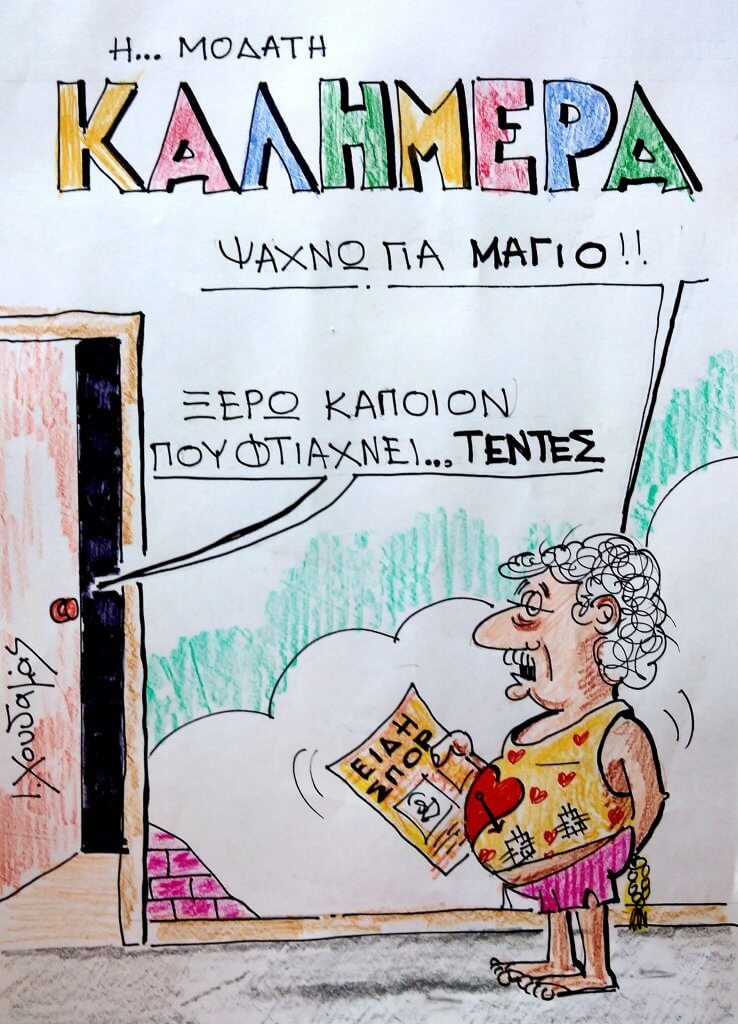 Η... ΜΟΔΑΤΗ
ΚΑΛΗΜΕΡΑ
ΨΑΧΝΩ ΓΙΑ ΜΑΓΙΟ!!
ΞΕΡΩ ΚΑΠΟΙΟΝ
ΠΟΥ ΦΤΙΑΧΝΕΙ... ΤΕΝΤΕΣ
ΕΙΔΗ
ΣΠΟΡ
Ι. Χουδαλάς